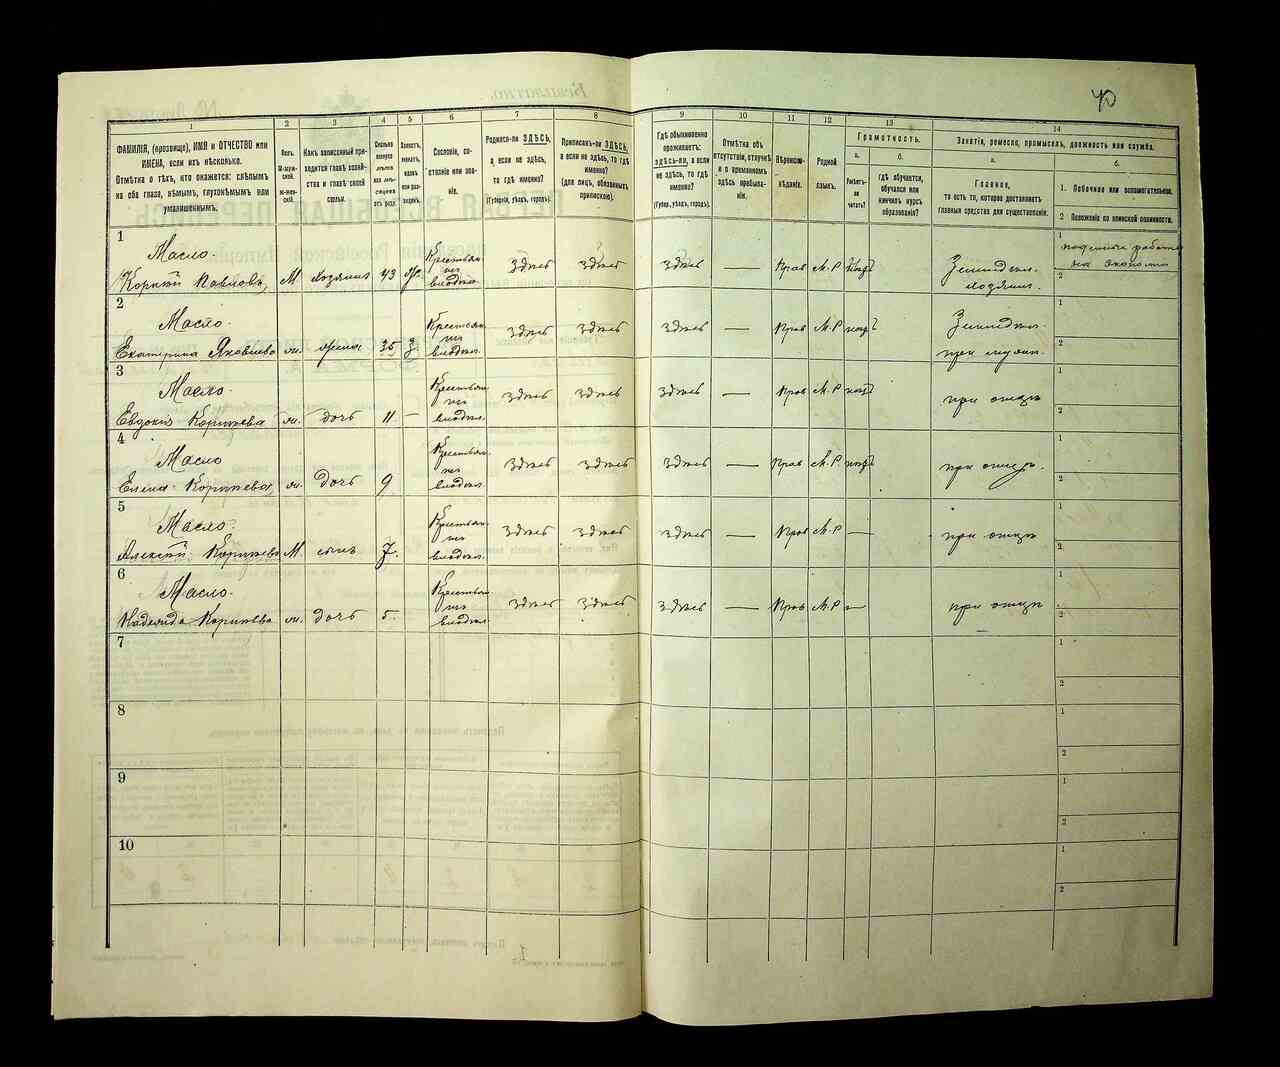 40
1
2
3
4
5
6
7
8
9
10
11
12
13
14
ФАМИЛІЯ, (прозвище), ИМЯ и ОТЧЕСТВО или
ИМЕНА, если ихъ нѣсколько.
Отмѣтка о тѣхъ, кто окажется: слѣпымъ
на оба глаза, нѣмымъ, глухонѣмымъ или
умалишеннымъ.
Полъ.
М-муж-
ской.
Ж-жен-
скій.
Какъ записанный при-
ходится главѣ хозяй-
ства и главѣ своей
семьи.
Сколько
минуло
лѣтъ
или мѣ-
сяцевъ
отъ роду.
Холостъ,
женатъ,
вдовъ
или раз-
веденъ.
Сословіе, со-
стояніе или зва-
ніе.
Родился-ли ЗДѢСЬ,
а если не здѣсь,
то гдѣ именно?
(Губернія, уѣздъ, городъ).
Приписанъ-ли ЗДѢСЬ,
а если не здѣсь, то гдѣ
именно?
(для лицъ, обязанныхъ
припискою).
Гдѣ обыкновенно
проживаетъ:
здѣсь-ли, а если
не здѣсь, то гдѣ
именно?
(Губер., уѣздъ, городъ).
Отмѣтка объ
отсутствіи, отлучкѣ
и о временномъ
здѣсь пребыва-
ніи.
Вѣроиспо-
вѣданіе.
Родной
языкъ.
Грамотность.
а.
Умѣетъ-
ли
читать?
б.
гдѣ обучается,
обучался или
кончилъ курсъ
образованія?
Занятіе, ремесло, промыселъ, должность или служба.
а.
Главное,
то есть то, которое доставляетъ
главныя средства для существованія.
б.
1. Побочное или вспомогательное.
2 Положеніе по воинской повинности.
1
Масло.
Павловъ, М хозяинъ 43 ж. Крестьян. изъ владѣл. здѣсь здѣсь здѣсь — Прав М.Р.
хозяин.
1
2
2
Масло.
Екатерина Яковлева ж. жена 35 з Крестьян. изъ владѣл. здѣсь здѣсь здѣсь — Прав М.Р.
1
2
3
Масло.
Евдокія ж. дочь 11. — Крестьян. изъ владѣл. здѣсь здѣсь здѣсь — Прав М.Р. при отцѣ
1
2
4
Масло
Елена ж. дочь 9 Крестьян. изъ владѣл. здѣсь здѣсь здѣсь — Прав М.Р. при отцѣ.
1
2
5
Масло.
Алексѣй М. сынъ 7. Крестьян. изъ владѣл. здѣсь здѣсь здѣсь — Прав М.Р — при отцѣ
1
2
6
Масло.
Надежда ж. дочь 5. Крестьян. изъ владѣл. здѣсь здѣсь здѣсь — Прав М.Р — при отцѣ
1
2
7
1
2
8
1
2
9
1
2
10
1
2